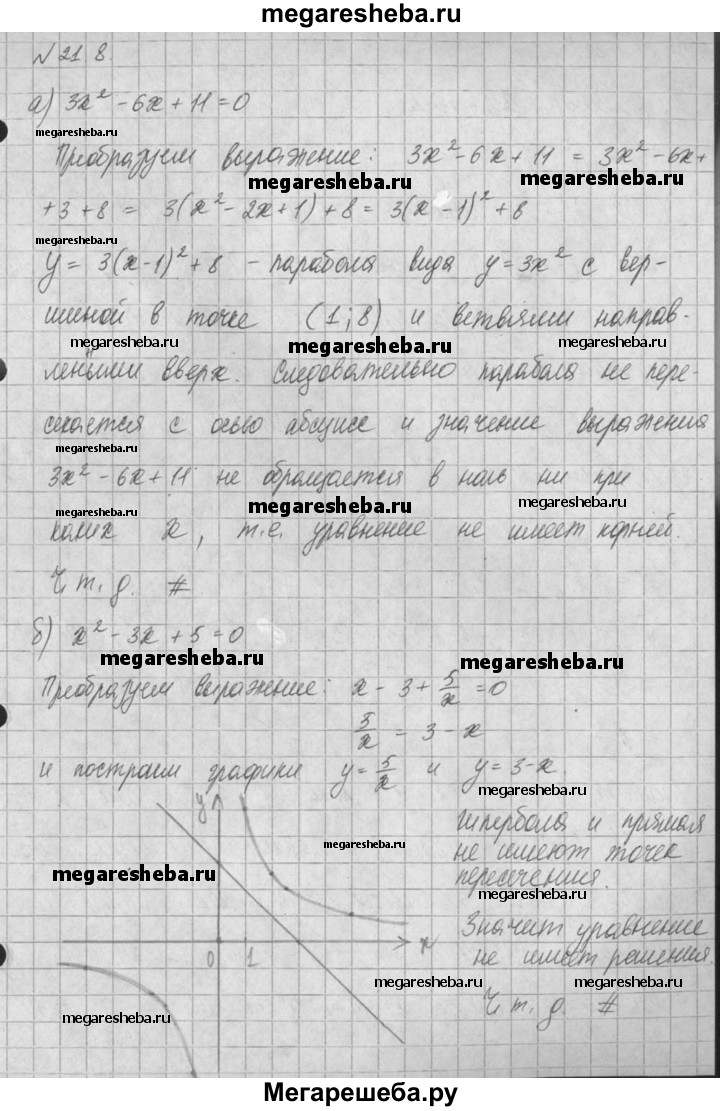 megaresheba.ru
№ 21 8.
а) 3x² - 6x + 11 = 0
megaresheba.ru
Преобразуем выражение: 3x² - 6x + 11 = 3x² - 6x +
megaresheba.ru megaresheba.ru
+ 3 + 8 = 3(x² - 2x + 1) + 8 = 3(x - 1)² + 8
megaresheba.ru
y = 3(x - 1)² + 8 - парабола вида y = 3x² с вер-
шиной в точке (1; 8) и ветвями направ-
megaresheba.ru megaresheba.ru megaresheba.ru
леными вверх. Следовательно парабола не пере-
секается с осью абсцисс и значение выражения
megaresheba.ru
3x² - 6x + 11 не обращается в ноль ни при
megaresheba.ru megaresheba.ru
каких x, т.е. уравнение не имеет корней.
Ч. т. д. #
б) x² - 3x + 5 = 0
megaresheba.ru megaresheba.ru
Преобразуем выражение: x - 3 + 5/x = 0
5/x = 3 - x
и построим графики y = 5/x и y = 3 - x.
megaresheba.ru
y
Гипербола и прямая
не имеют точек
megaresheba.ru
пересечения.
megaresheba.ru
megaresheba.ru
Значит уравнение
0 1 x
не имеет решения.
megaresheba.ru megaresheba.ru
Ч. т. д. #
megaresheba.ru
Мегарешеба.ру